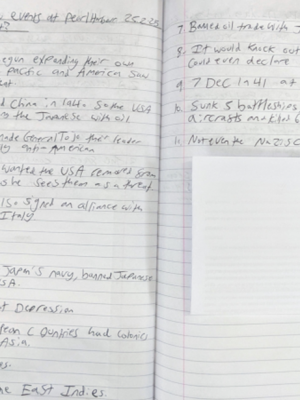 events at pearlharbor 25/2/25
?
begun expanding their own
Pacific and American saw
nt
d China in so the USA
the Japanese with oil
made General Tojo their leader
anti-American
wanted the USA removed from
as he sees them as a threat
also signed an alliance with
Italy
Japan's navy, banned Japanese
USA.
t Depression
ean Countries had colonies
Asia.
es.
he East Indies.
7. Banned oil trade with J
8. It would knock out
could even declare
9. 7 Dec 1941 at
10. Sunk 5 battleships
aircrafts and killed
11. Not even the Nazis c